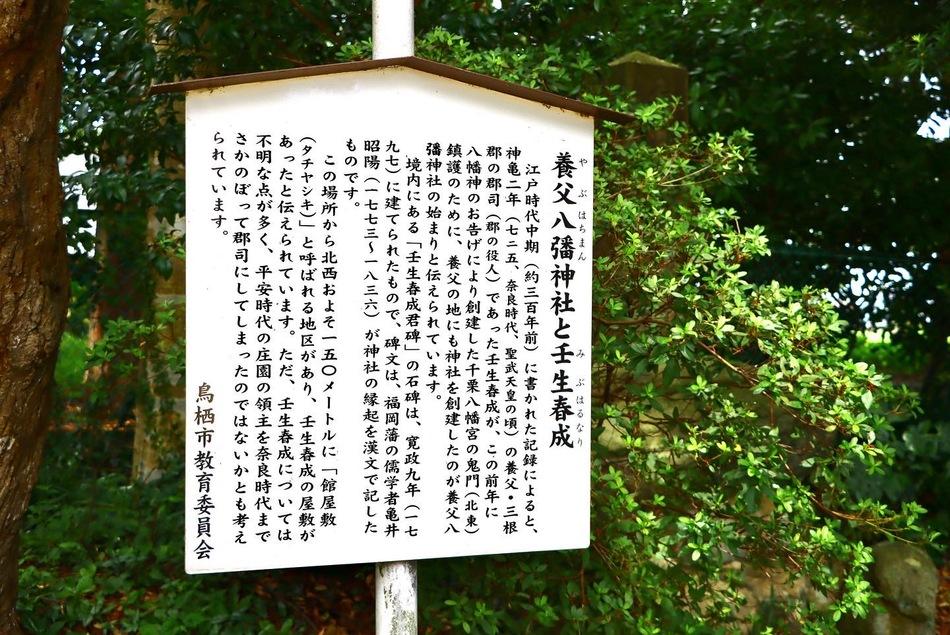 養父八幡神社と壬生春成
やぶはちまん みぶはるなり
江戸時代中期（約三百年前）に書かれた記録によると、
神亀二年（七二五、奈良時代、聖武天皇の頃）の養父・三根
郡の郡司（郡の役人）であった壬生春成が、この前年に
八幡神のお告げにより創建した千栗八幡宮の鬼門（北東）
鎮護のために、養父の地にも神社を創建したのが養父八
幡神社の始まりと伝えられています。
境内にある「壬生春成君碑」の石碑は、寛政九年（一七
九七）に建てられたもので、碑文は、福岡藩の儒学者亀井
昭陽（一七七三～一八三六）が神社の縁起を漢文で記した
ものです。
この場所から北西およそ一五〇メートルに「館屋敷
（タチヤシキ）」と呼ばれる地区があり、壬生春成の屋敷が
あったと伝えられています。ただ、壬生春成については
不明な点が多く、平安時代の庄園の領主を奈良時代まで
さかのぼって郡司にしてしまったのではないかとも考え
られています。
鳥栖市教育委員会